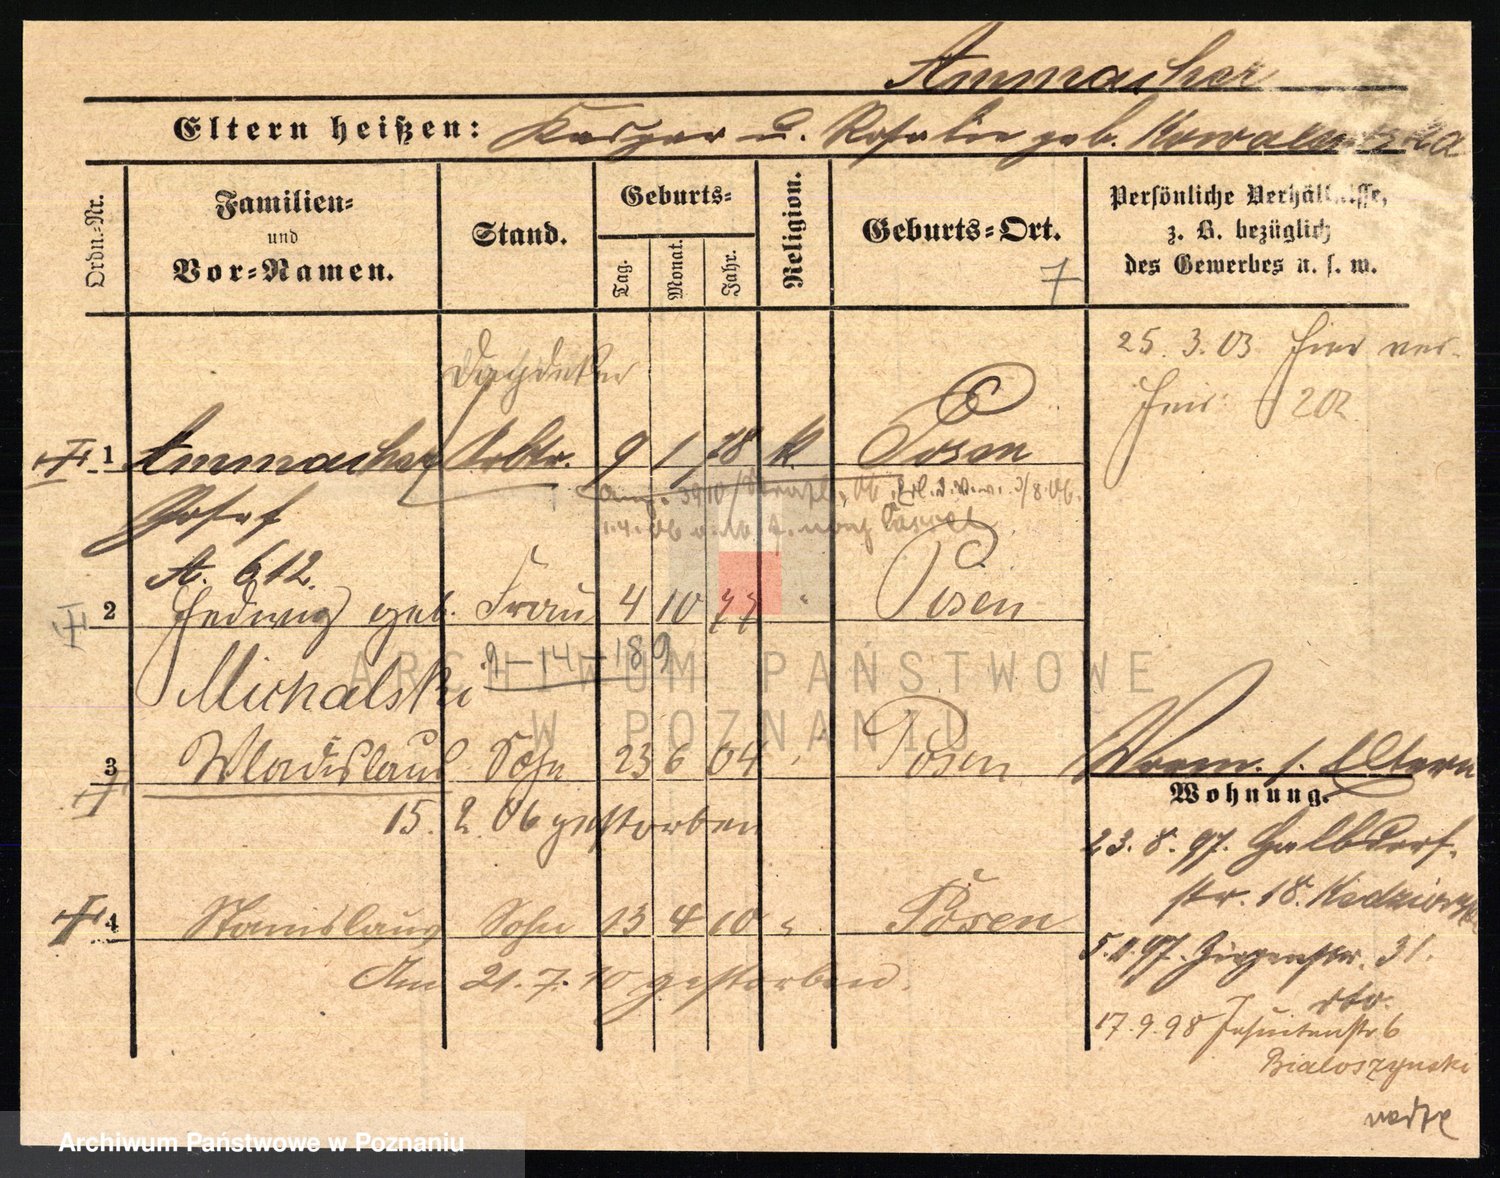 Ammacher
Eltern heißen: Kaspar u. Rosalie geb. Kowalewska
Ordn.-Nr.
Familien-
und
Vor-Namen.
Stand.
Geburts-
Tag.
Monat.
Jahr.
Religion.
Geburts-Ort.
7
Persönliche Verhältnisse,
z. B. bezüglich
des Gewerbes u. s. w.
25. 3. 03 hier ver-
202
Dachdecker
1 Ammacher Arbtr. 9 1 78 k. Posen
Josef
A. 612.
2 Hedwig geb. Frau 4 10 77 " Posen
Michalski
9-14-189
3 Wladislaus Sohn 23 6 04 Posen
15. 2. 06 gestorben
4 Stanislaus Sohn 13 4 10 " Posen
Am 21. 7. 10 gestorben.
Vorm. s. Eltern
Wohnung.
23. 8. 97. Halbdorf-
str. 18.
97. 31.
17. 9. 98 Jesuitenstr 6
Bialoszynski
ARCHIWUM PAŃSTWOWE
W POZNANIU
Archiwum Państwowe w Poznaniu